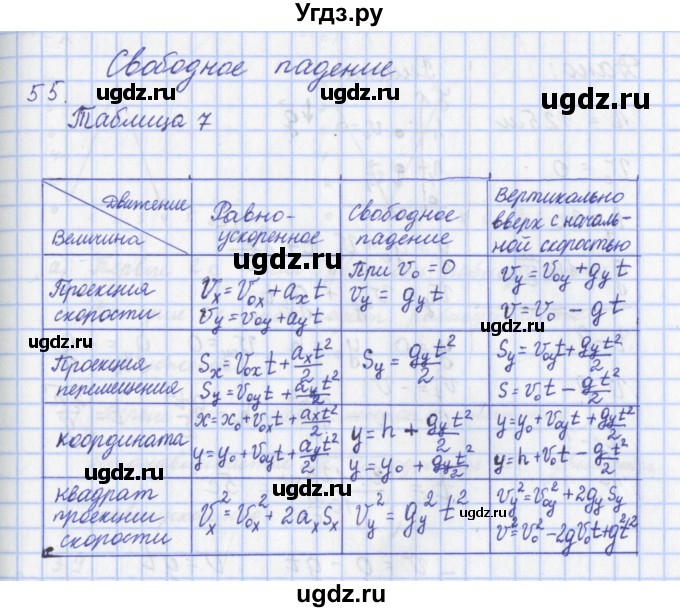 Угдз.ру
Свободное падение
55.
ugdz.ru ugdz.ru
Таблица 7
ugdz.ru
Движение
Величина
Равно-
ускоренное
Свободное
падение
Вертикально
вверх с началь-
ной скоростью
ugdz.ru
Проекция
скорости
Vₓ = V₀ₓ + aₓt
Vy = V₀y + ayt
При V₀ = 0
Vy = gyt
Vy = V₀y + gyt
V = V₀ - gt
ugdz.ru ugdz.ru ugdz.ru
Проекция
перемещения
Sₓ = V₀ₓt + aₓt²/2
Sy = V₀yt + ayt²/2
Sy = gyt²/2
Sy = V₀yt + gyt²/2
S = V₀t - gt²/2
координата
x = x₀ + V₀ₓt + aₓt²/2
y = y₀ + V₀yt + ayt²/2
y = h + gyt²/2
y = y₀ + gyt²/2
y = y₀ + V₀yt + gyt²/2
y = h + V₀t - gt²/2
ugdz.ru ugdz.ru ugdz.ru
квадрат
проекции
скорости
Vₓ² = V₀ₓ² + 2aₓSₓ
Vy² = gy² t²
Vy² = V₀y² + 2gySy
V² = V₀² - 2gV₀t + g²t²
ugdz.ru ugdz.ru